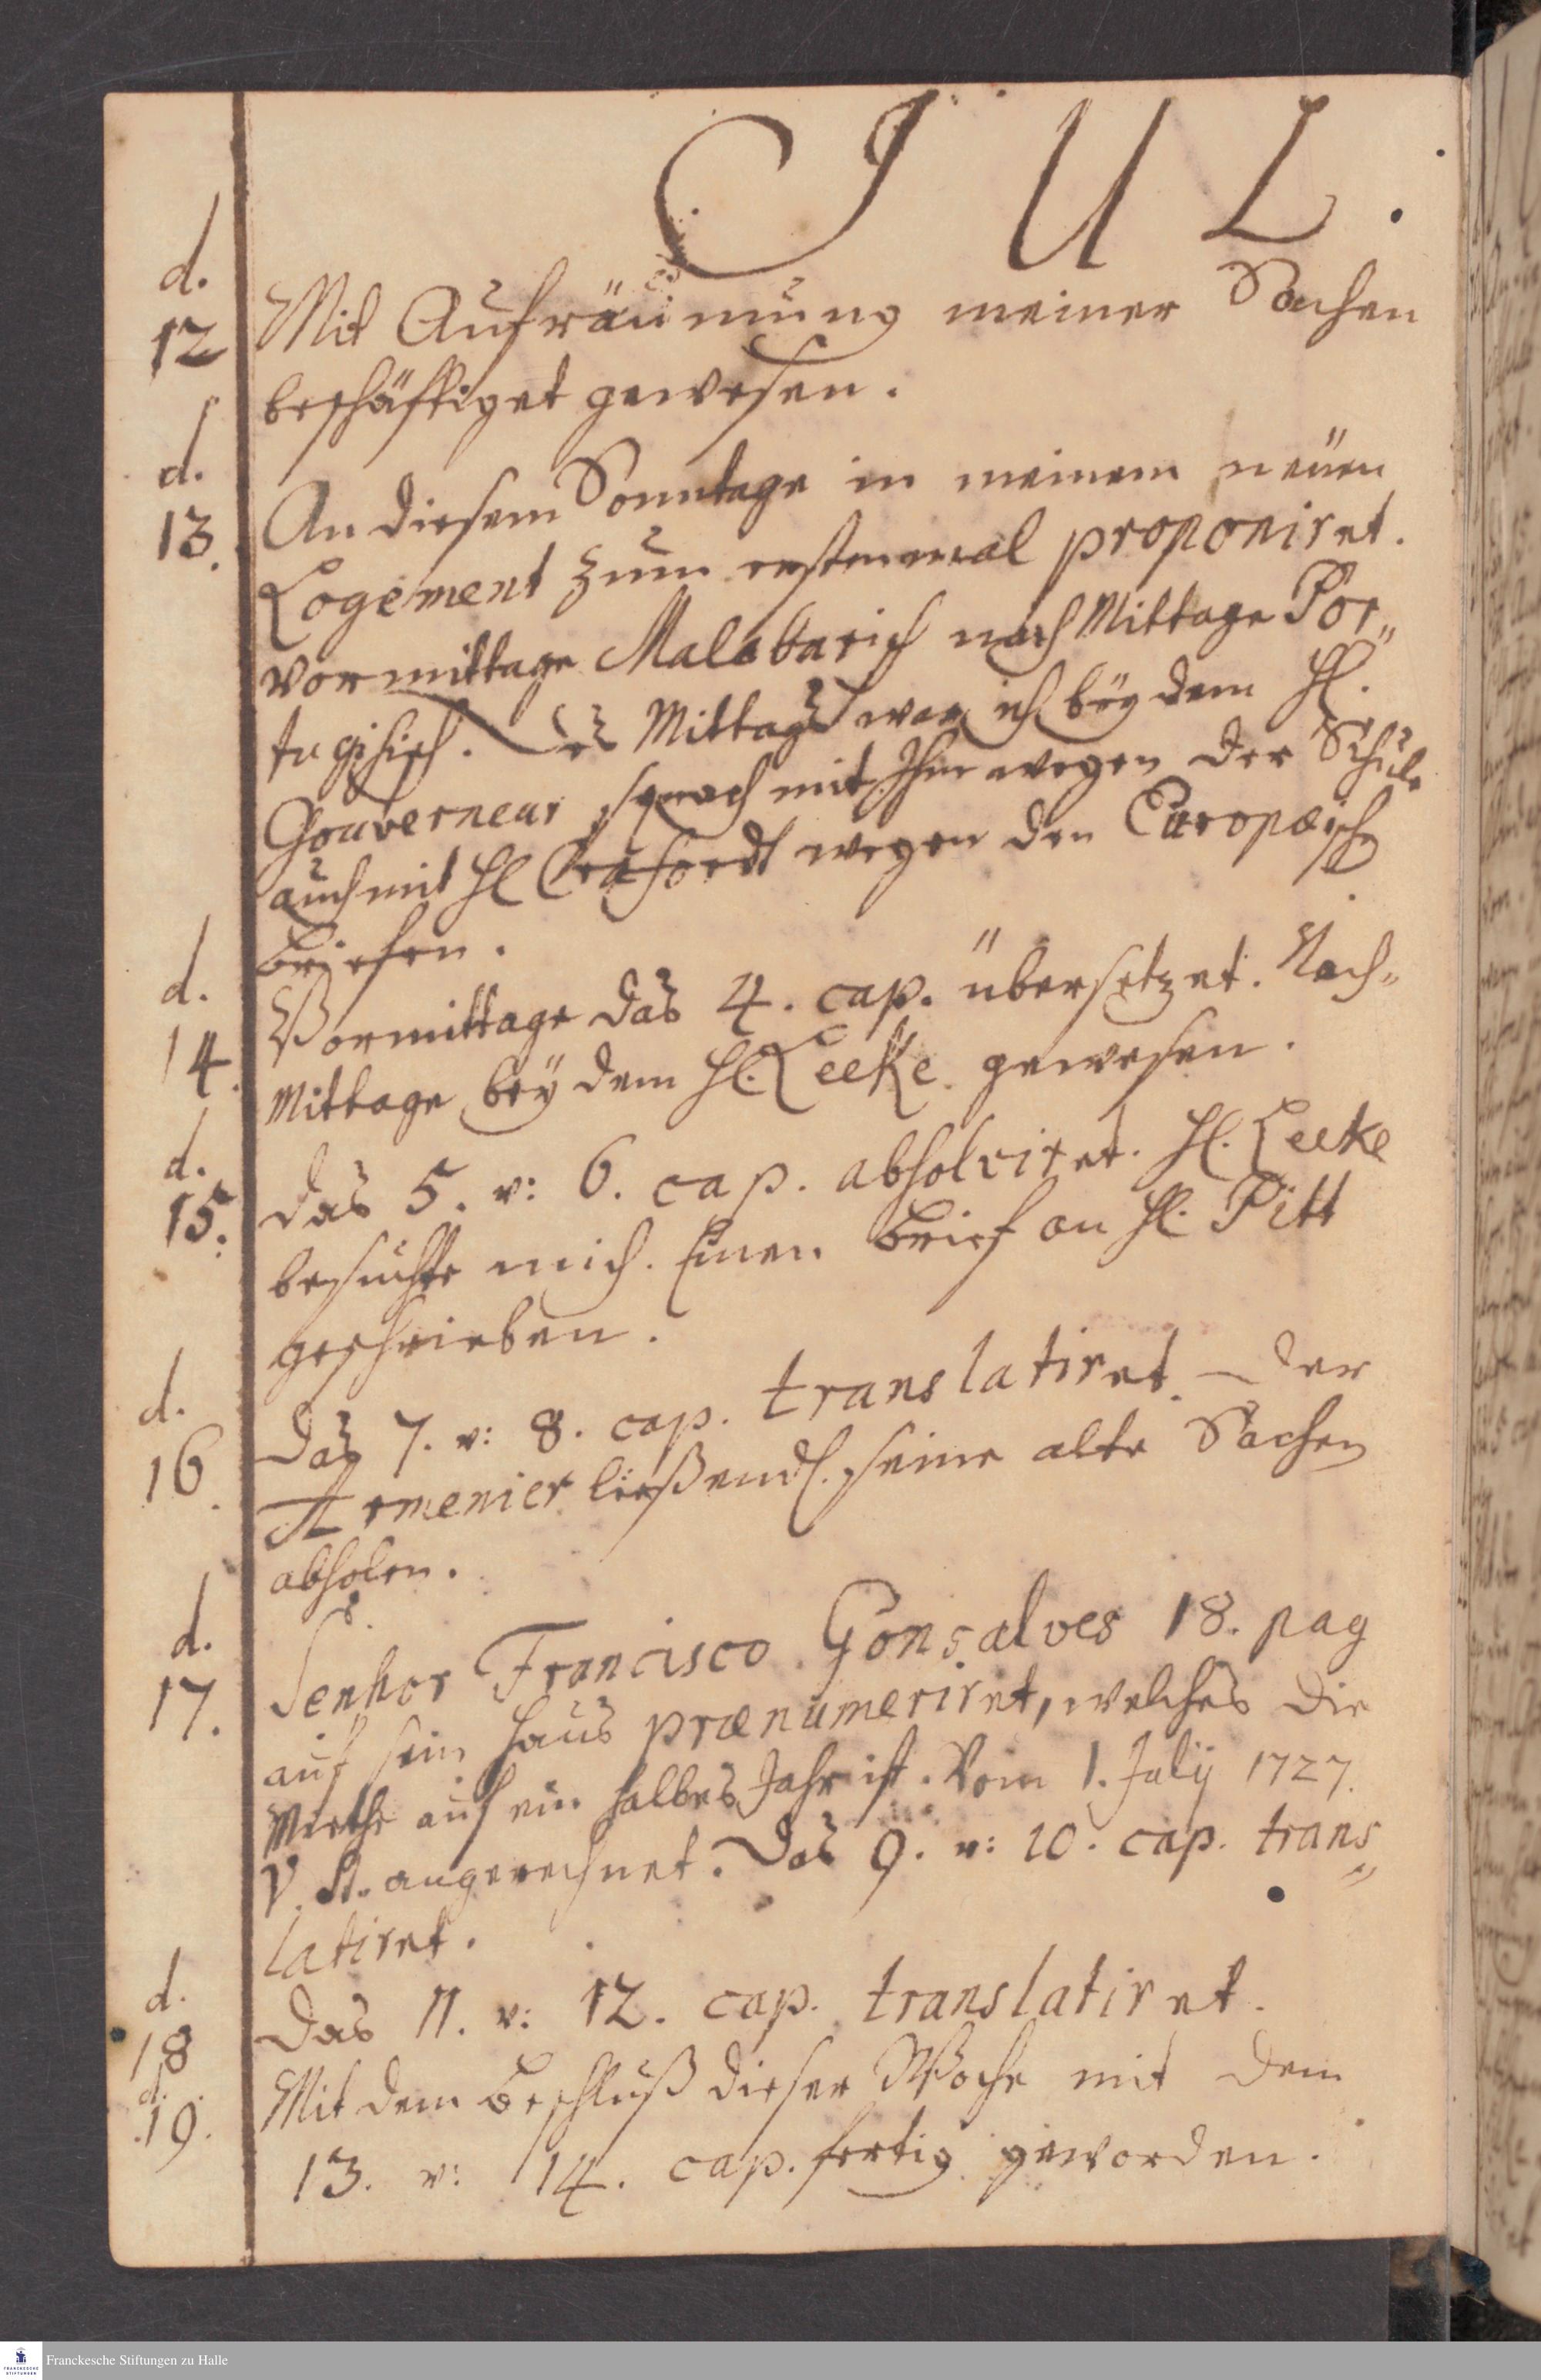 JUL.
d.
12 Mit Aufräumung meiner Sachen
beschäfftiget gewesen.
d.
13. An diesem Sonntage in meinem neüen
Logement zum erstenmal proponiret.
vormittage Malabarisch nach Mittage Por„
tugisisch. Des Mittags war ich beÿ dem Hl.
Gouverneur sprach mit Ihm wegen der Schule
auch mit Hl Crafordt wegen den Europæisch
Briefen.
d.
14. Vormittage das 4. cap. übersetzet. Nach„
Mittage beÿ dem Hl. Leeke gewesen.
d.
15. das 5. u: 6. cap. absolviret. Hl. Leeke
besuchte mich. Einen Brief an Hl. Pitt
geschrieben.
d.
16. Das 7. u: 8. cap. translatiret. Der
Armenier ließ endl. seine alte Sachen
abholen.
d.
17. Senhor Francisco Gonsalves 18. pag
auf sein Haus prænumeriret, welches die
Miethe auf ein halbes Jahr ist. Vom 1. Julÿ 1727.
V. St. angerechnet. Das 9. u: 10. cap. trans„
latiret.
d.
18 Das 11. u: 12. cap. translatiret.
d.
19. Mit dem Beschluß dieser Woche mit dem
13. u: 14. cap. fertig geworden.
Franckesche Stiftungen zu Halle